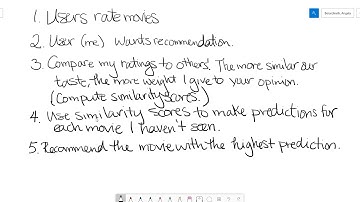 1. Users rate movies
2. User (me) wants recommendation.
3. Compare my ratings to others! The more similar our
taste, the more weight I give to your opinion.
(Compute similarity scores.)
4. Use similarity scores to make predictions for
each movie I haven't seen.
5. Recommend the movie with the highest prediction.